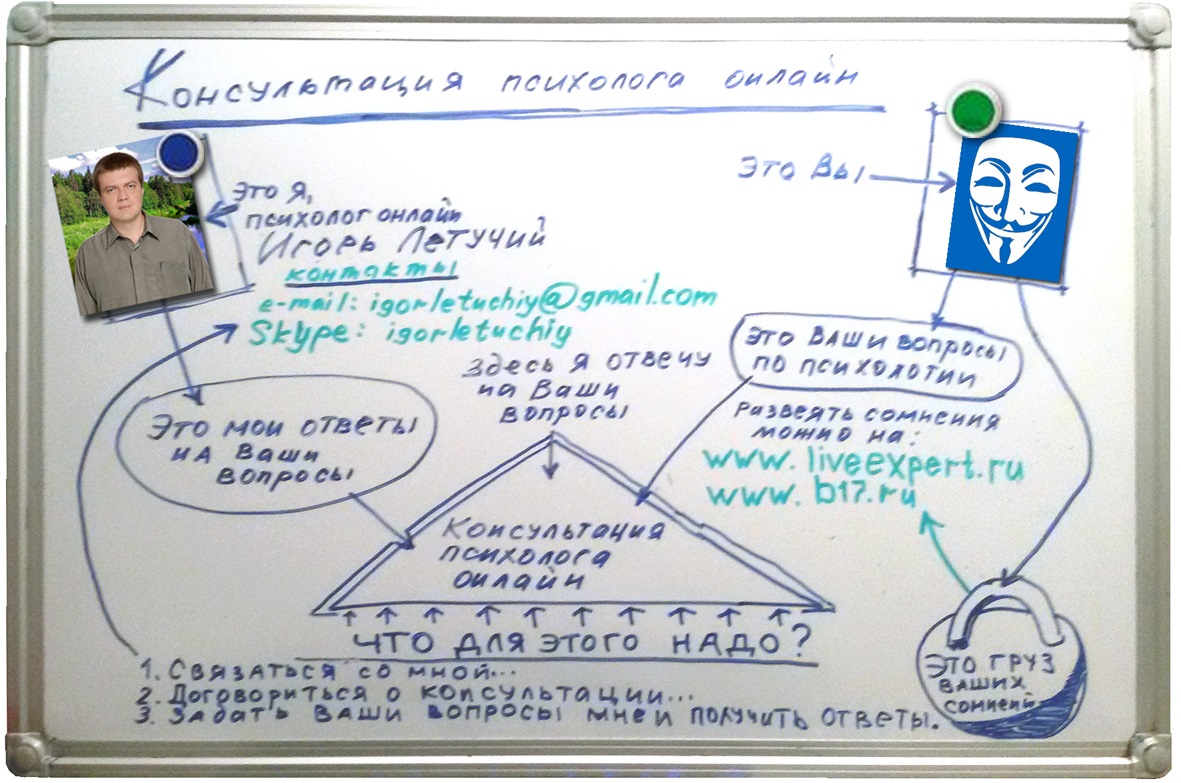 Консультация психолога онлайн
Это Я,
психолог онлайн
Игорь Летучий
контакты
e-mail: igorletuchiy@gmail.com
Skype: igorletuchiy
Это Вы
Это Ваши вопросы
по психологии
Здесь я отвечу
на Ваши
вопросы
Это мои ответы
на Ваши
вопросы
Развеять сомнения
можно на:
www.liveexpert.ru
www.b17.ru
Консультация
психолога
онлайн
Что для этого надо?
1. Связаться со мной...
2. Договориться о консультации...
3. Задать Ваши вопросы мне и получить ответы.
Это груз
Ваших
сомнений